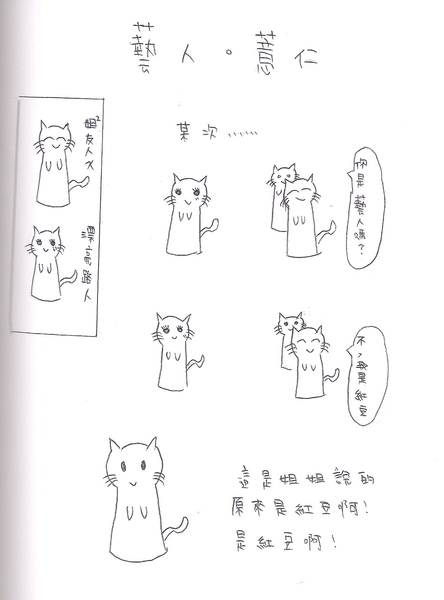 藝人。薏仁
姐²友人ㄨ
漂亮路人
某次……
你是藝人嗎？
不，我是紅豆
這是姐姐說的
原來是紅豆啊！
是紅豆啊！